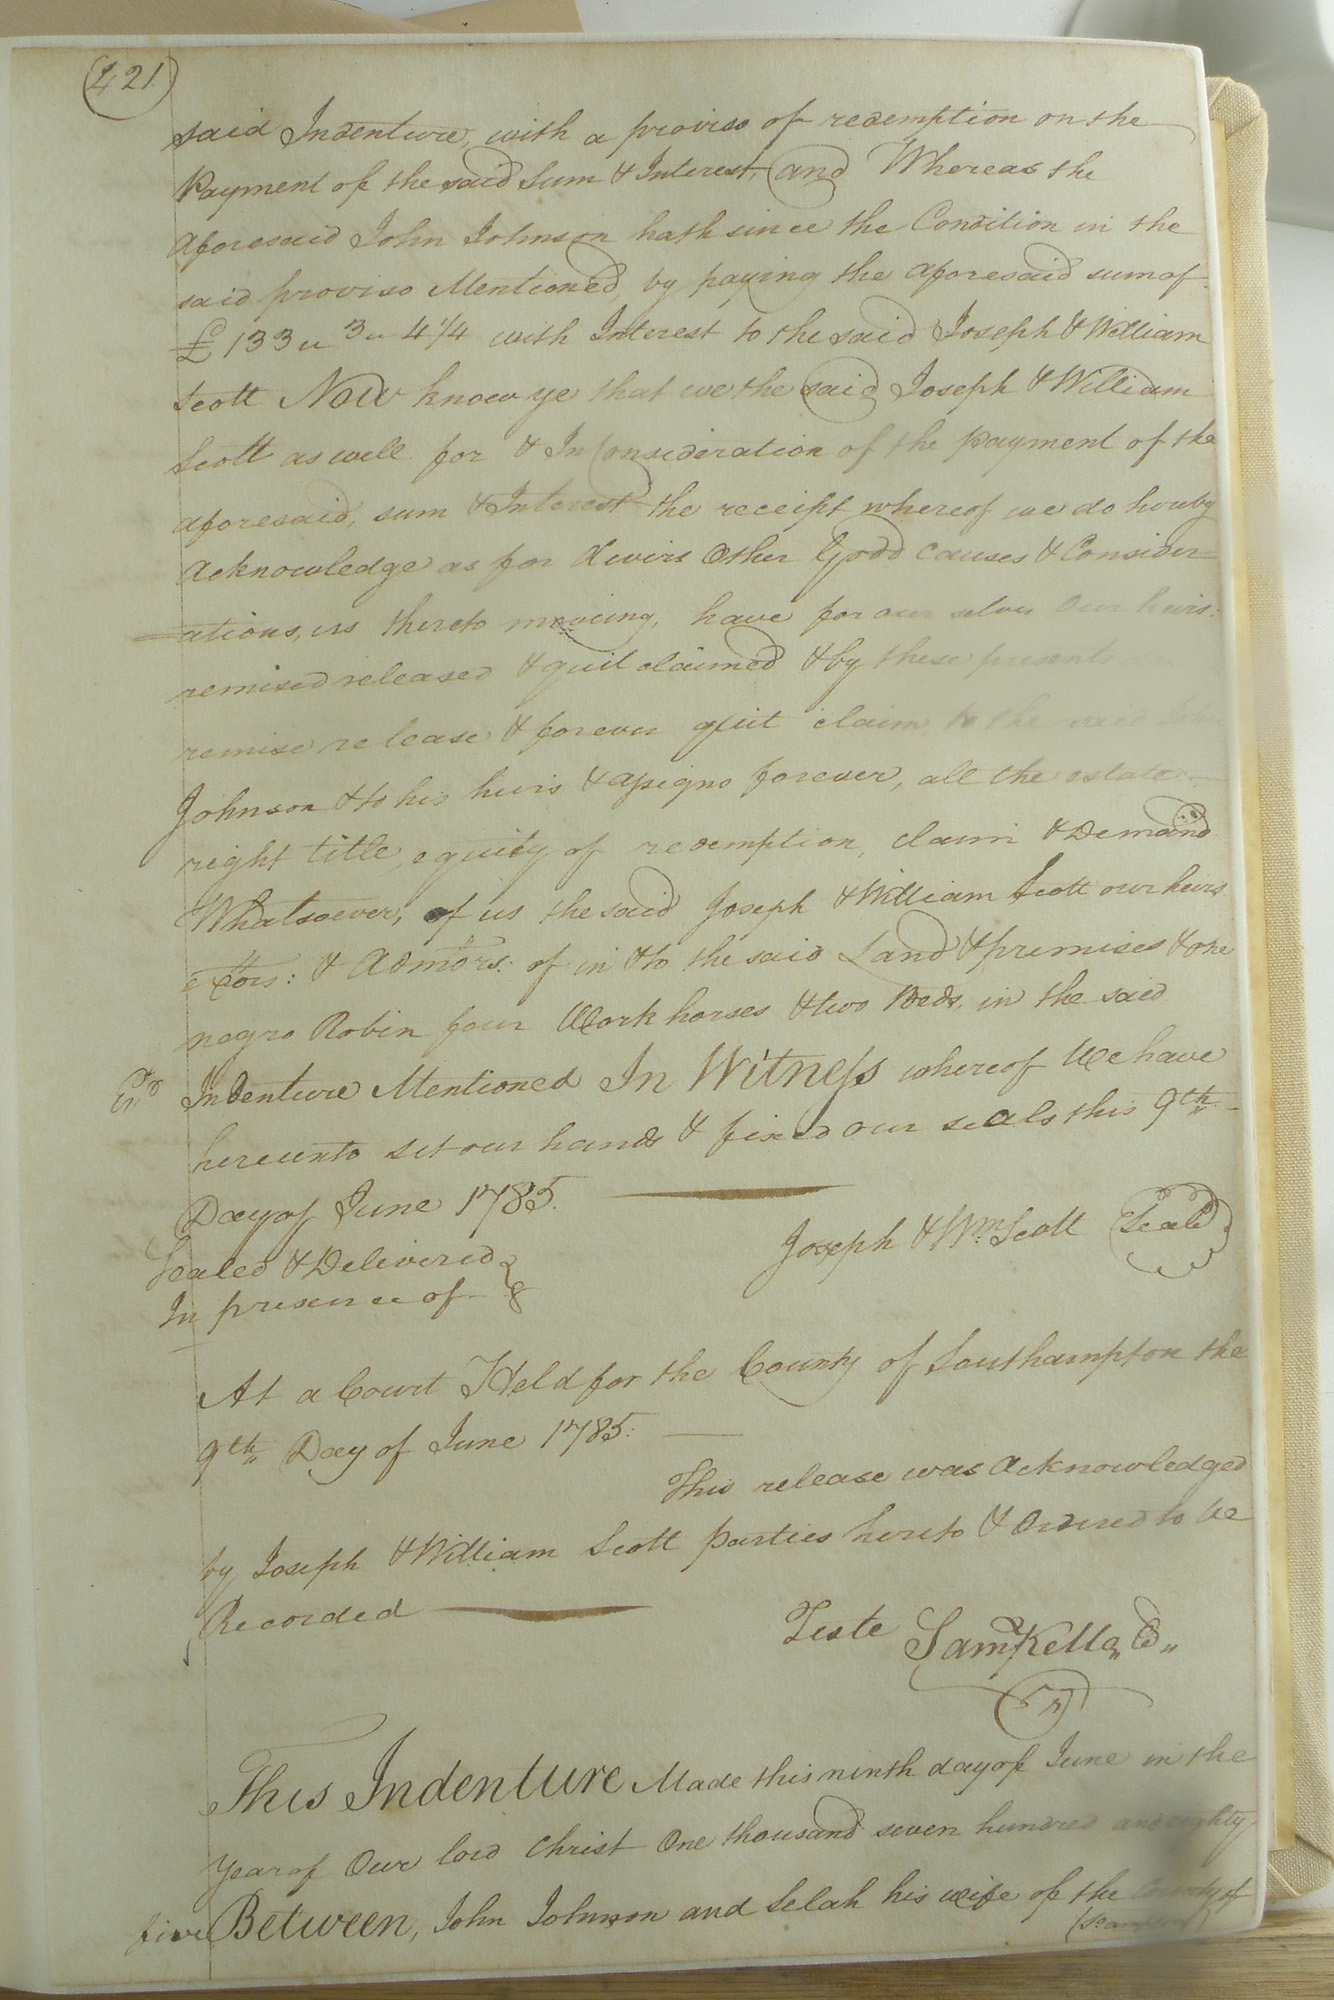 421
said Indenture, with a proviso of redemption on the
Payment of the said Sum & Interest, and Whereas the
aforesaid John Johnson hath since the Condition in the
said proviso Mentioned, by paying the aforesaid sum of
£133 „ 3 „ 4 1/4 with Interest to the said Joseph & William
Scott Now know ye that we the said Joseph & William
Scott as well for & In Consideration of the payment of the
aforesaid, sum & Interest the receipt whereof we do hereby
Acknowledge as for divirs Other Good causes & Consider=
=ations, us thereto moveing, have for our selves Our heirs:
remised released & quit claimed & by these presents
remise release & forever quit claim to the said
Johnson & to his heirs & assigns forever, all the estate
right title, equity of redemption, claim & Demand
Whatsoever, of us the said Joseph & William Scott our heirs
extors: & Admors: of in & to the said Land & premises & one
negro Robin four Work horses & two Beds, in the said
Ex.d Indenture Mentioned In Witness whereof We have
hereunto set our hands & fixed our seals this 9th
Day of June 1785.
Joseph & Wm. Scott Seal
Sealed & Delivered
In presence of
At a Court Held for the County of Southampton the
9th Day of June 1785:
This release was Acknowledged
by Joseph & William Scott parties hereto & Ordered to be
Recorded
Teste Sam Kello C
This Indenture Made this ninth day of June in the
Year of Our lord Christ One thousand seven hundred and eighty
five Between, John Johnson and Selah his wife of the County of